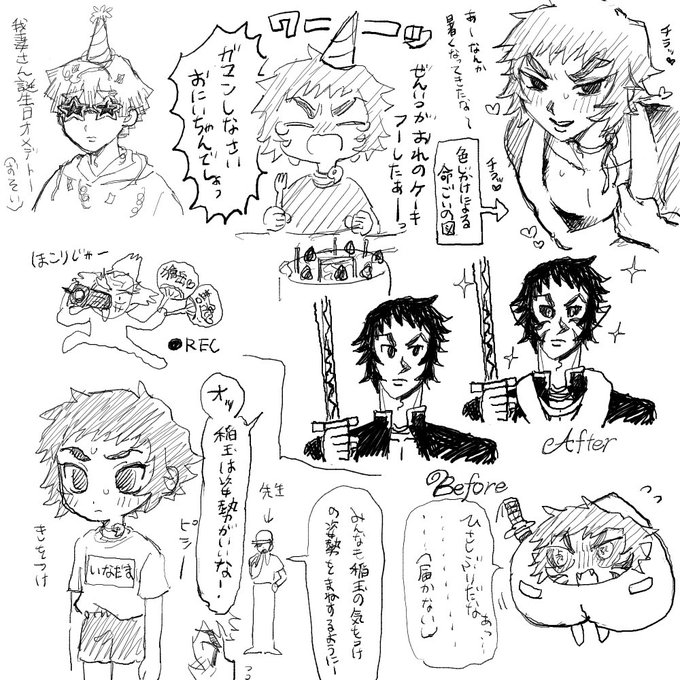 我妻さん誕生日オメデトー
(おそい)
ガマンしなさい
おにいちゃんでしょっ
ワーーーッ
ぜんいつがおれのケーキ
フーしたぁーーっ
あーなんか
暑くなってきたな〜
チラッ
チラッ
色じかけによる
命ごいの図
ほこりじゅー
REC
Before
After
オッ
稲玉は姿勢がいいなー!
ピシー
きをつけ
いなだま
先生
みんなも稲玉の気をつけ
の姿勢をまねするようにー
ひさしぶりだなぁっ…
届かない